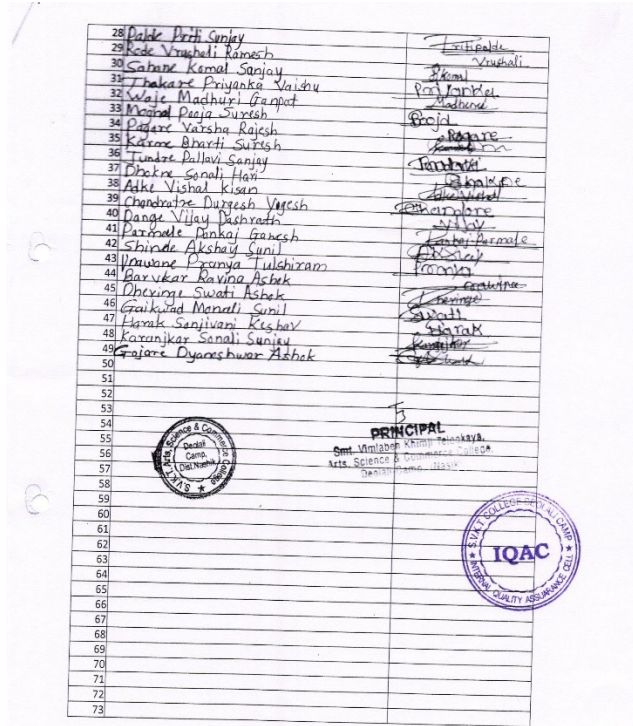 28 Palde Priti Sunjay Pritipalde
29 Rode Vrushali Ramesh Vrushali
30 Sahane Komal Sanjay Komal
31 Thakare Priyanka Vaishu Priyanka
32 Waje Madhuri Ganpat Madhuri
33 Moghal Pooja Suresh Pooja
34 Pagare Varsha Rajesh Pagare
35 Karme Bharti Suresh
36 Tundre Pallavi Sanjay
37 Dhokne Sonali Hari
38 Adke Vishal Kisan Adke Vishal
39 Chandratre Durgesh Yogesh
40 Dange Vijay Dashrath Vijay
41 Parmale Pankaj Ganesh Pankaj Parmale
42 Shinde Akshay Sunil
43 Unawane Pranya Tulshiram
44 Barvkar Ravina Ashok
45 Dheringe Swati Ashok Dheringe
46 Gaikwad Monali Sunil
47 Harak Sanjivani Keshav Harak
48 Karanjkar Sonali Sunjay Karanjkar
49 Gojare Dyaneshwar Ashok
50
51
52
53
54
55
56
57
58
59
60
61
62
63
64
65
66
67
68
69
70
71
72
73
S.V.K.T. Arts, Science & Commerce College
Deolali
Camp,
Dist.Nashik
PRINCIPAL
Smt. Vimlaben Khimji Tejookaya,
Arts, Science & Commerce College,
Deolali Camp,
S.V.K.T COLLEGE DEOLALI CAMP
IQAC
INTERNAL QUALITY ASSUARANCE CELL